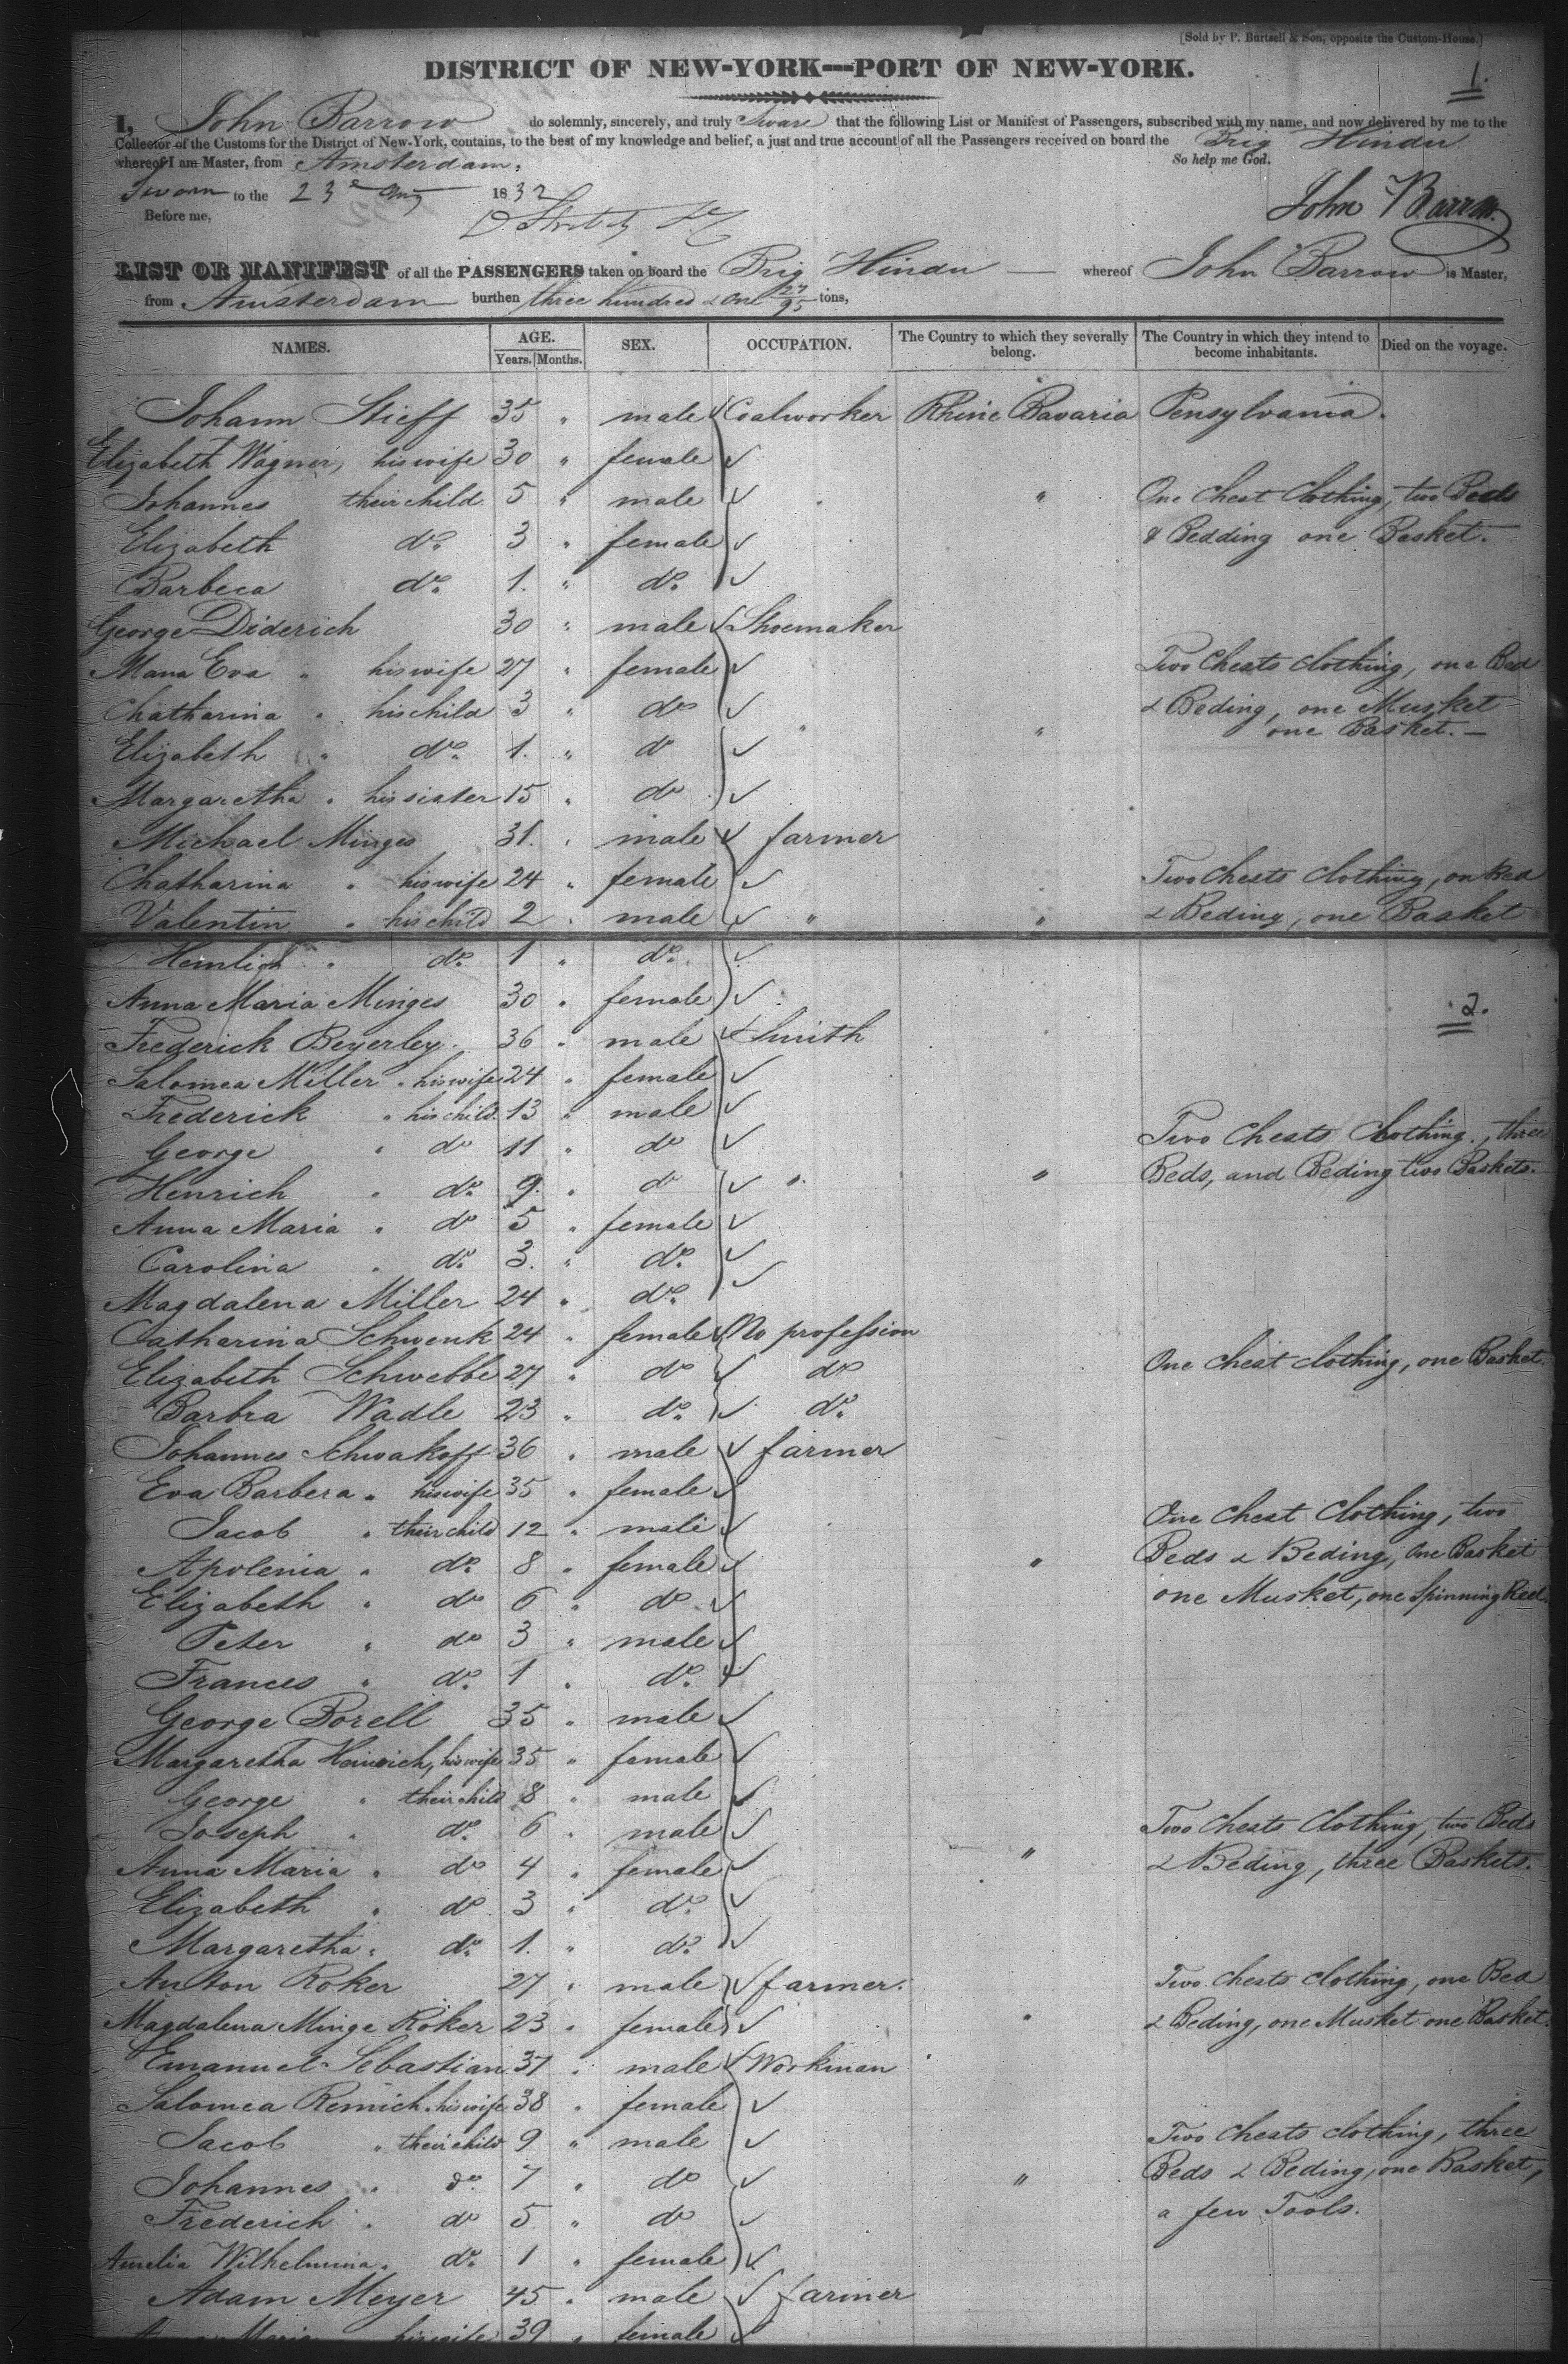 [Sold by P. Burtsell & Son, opposite the Custom-House.]
1.
DISTRICT OF NEW-YORK---PORT OF NEW-YORK.
I, John Barrow do solemnly, sincerely, and truly Sware that the following List or Manifest of Passengers, subscribed with my name, and now delivered by me to the
Collector of the Customs for the District of New-York, contains, to the best of my knowledge and belief, a just and true account of all the Passengers received on board the Brig Hindu
whereof I am Master, from Amsterdam. So help me God.
Sworn to the 23 Aug 1832
Before me, John Barrow
LIST OR MANIFEST of all the PASSENGERS taken on board the Brig Hindu — whereof John Barrow is Master,
from Amsterdam burthen three hundred & One 27/95 tons,
NAMES. AGE. Years. Months. SEX. OCCUPATION. The Country to which they severally belong. The Country in which they intend to become inhabitants. Died on the voyage.
Johann Stieff 35 " male Coalworker Rhine Bavaria Pensylvania.
Elizabeth Wagner, his wife 30 " female
Johannes their child 5 " male " One Chest Clothing, two Beds
Elizabeth do. 3 " female & Bedding one Basket.
Barbeca do. 1. " do.
George Diderich 30 " male Shoemaker
Maria Eva " his wife 27 " female Two Chests clothing, one Bed
Chatharina " his child 3 " do & Beding, one Musket
Elizabeth " do. 1. " do " " one Basket. —
Margaretha " his sister 15 " do
Michael Minges 31. " male farmer
Chatharina " his wife 24 " female Two Chests Clothing, on Bed
Valentin " his child 2 " male " " & Beding, one Basket
" do. 1 " do.
Anna Maria Minges 30 " female
2.
Frederick Beyerley. 36 " male Smith
Salomea Miller " his wife 24 " female
Frederick " his child. 13 " male Two Chests Clothing., three
George " do 11 " do
Henrich " do. 9. " do " " Beds, and Beding two Baskets.
Anna Maria " do 5 " female
Carolina " do. 3. " do.
Magdalena Miller 24 " do.
Catharina Schwenk 24 " female No profession
Elizabeth Schwebbe 27 " do do One Chest clothing, one Basket.
Barbra Wadle 23 " do. do.
Johannes Schwakoff 36 " male farmer
Eva Barbera " his wife 35 " female
Jacob " their child 12 " male One Chest Clothing, two
Apolenia " do. 8 " female " Beds & Beding, One Basket
Elizabeth " do 6 " do. one Musket, one Spinning Reel.
Peter " do 3 " male
Frances " do. 1 " do.
George Borell 35 " male
Margaretha Heinrich, his wife 35 " female
George " their child 8 " male
Joseph " do. 6 " male Two Chests Clothing, two Beds
Anna Maria " do 4 " female " & Beding, three Baskets.
Elizabeth " do 3 " do.
Margaretha " do. 1. " do.
Anton Röker 27 " male farmer. Two chests clothing, one Bed
Magdalena Minge Röker 23 " female " & Beding, one Musket one Basket.
Emanuel Sebastian 37 " male Workman
Salomea Remich " his wife 38 " female
Jacob " their child 9 " male Two Chests clothing, three
Johannes " do. 7 " do " Beds & Beding, one Basket,
Frederich " do 5 " do a few Tools.
Amelia Wilhelmina " do. 1 " female
Adam Meyer 45 " male farmer
Anna Maria his wife 39 " female